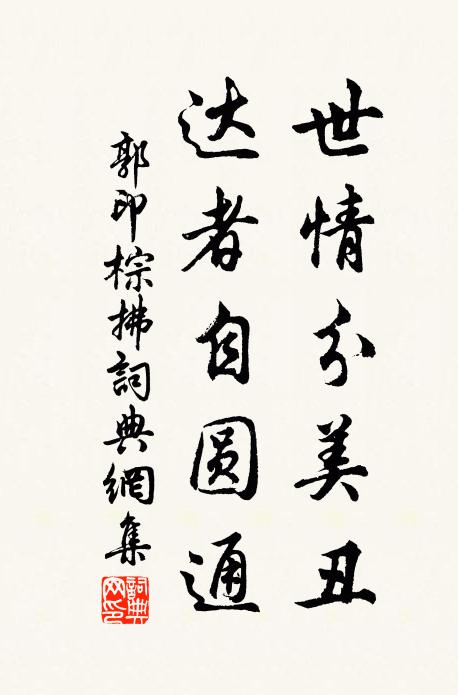 世情分美丑
达者自圆通
郭印棕拂詞典網集
詞典网印